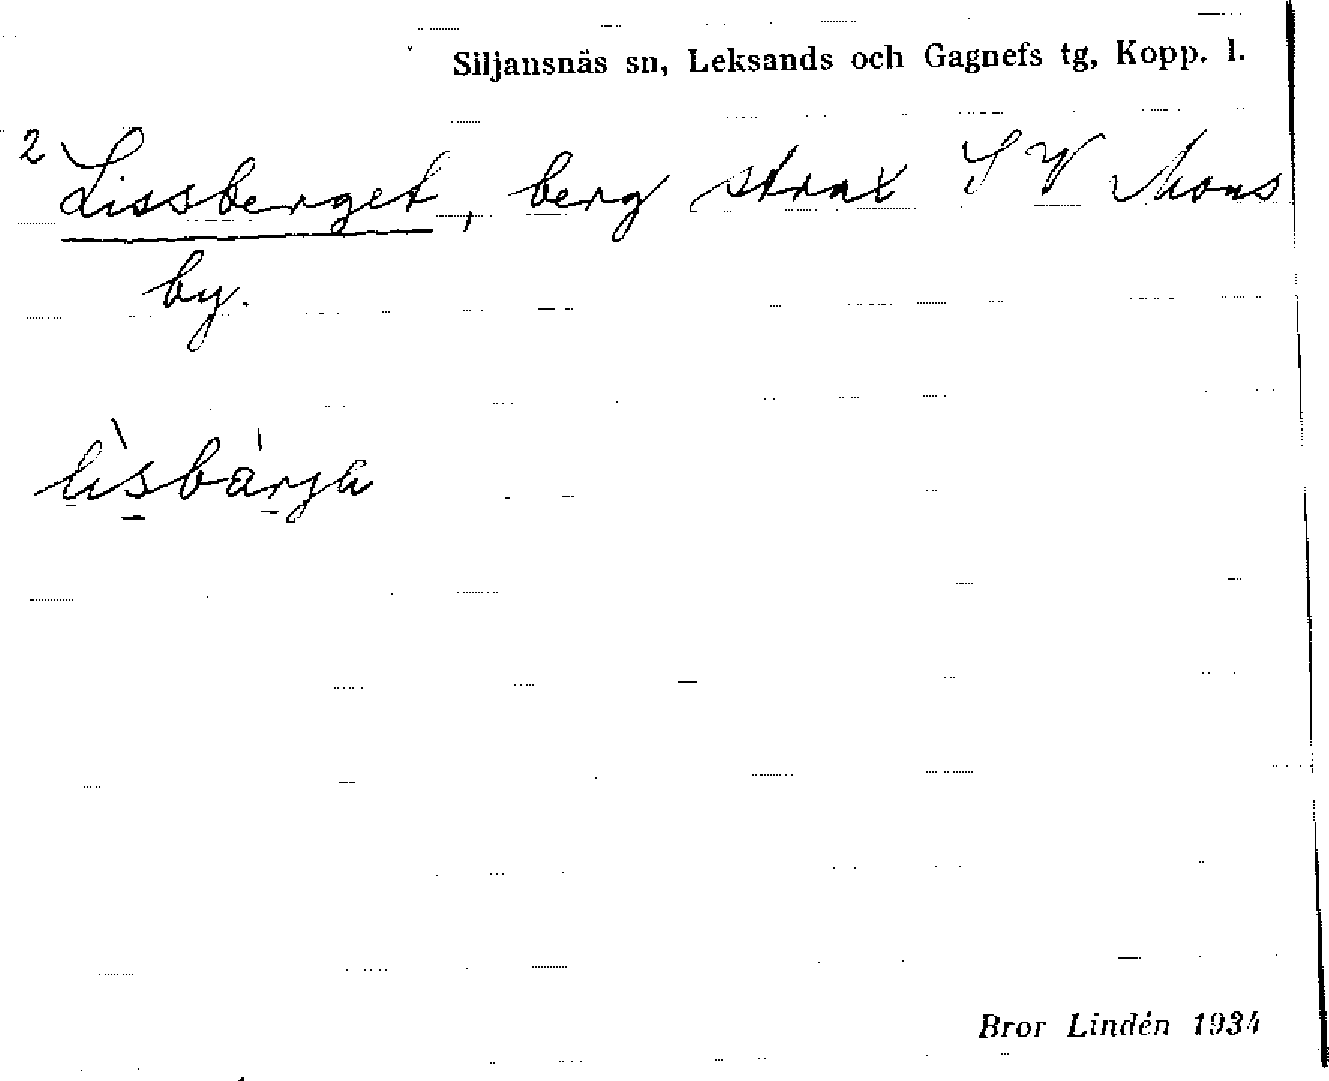 Siljansnäs sn, Leksands och Gagnefs tg, Kopp. l.
2 Lissberget, berg strax SV Mons
by.
lìsbárja
Bror Lindén 1934